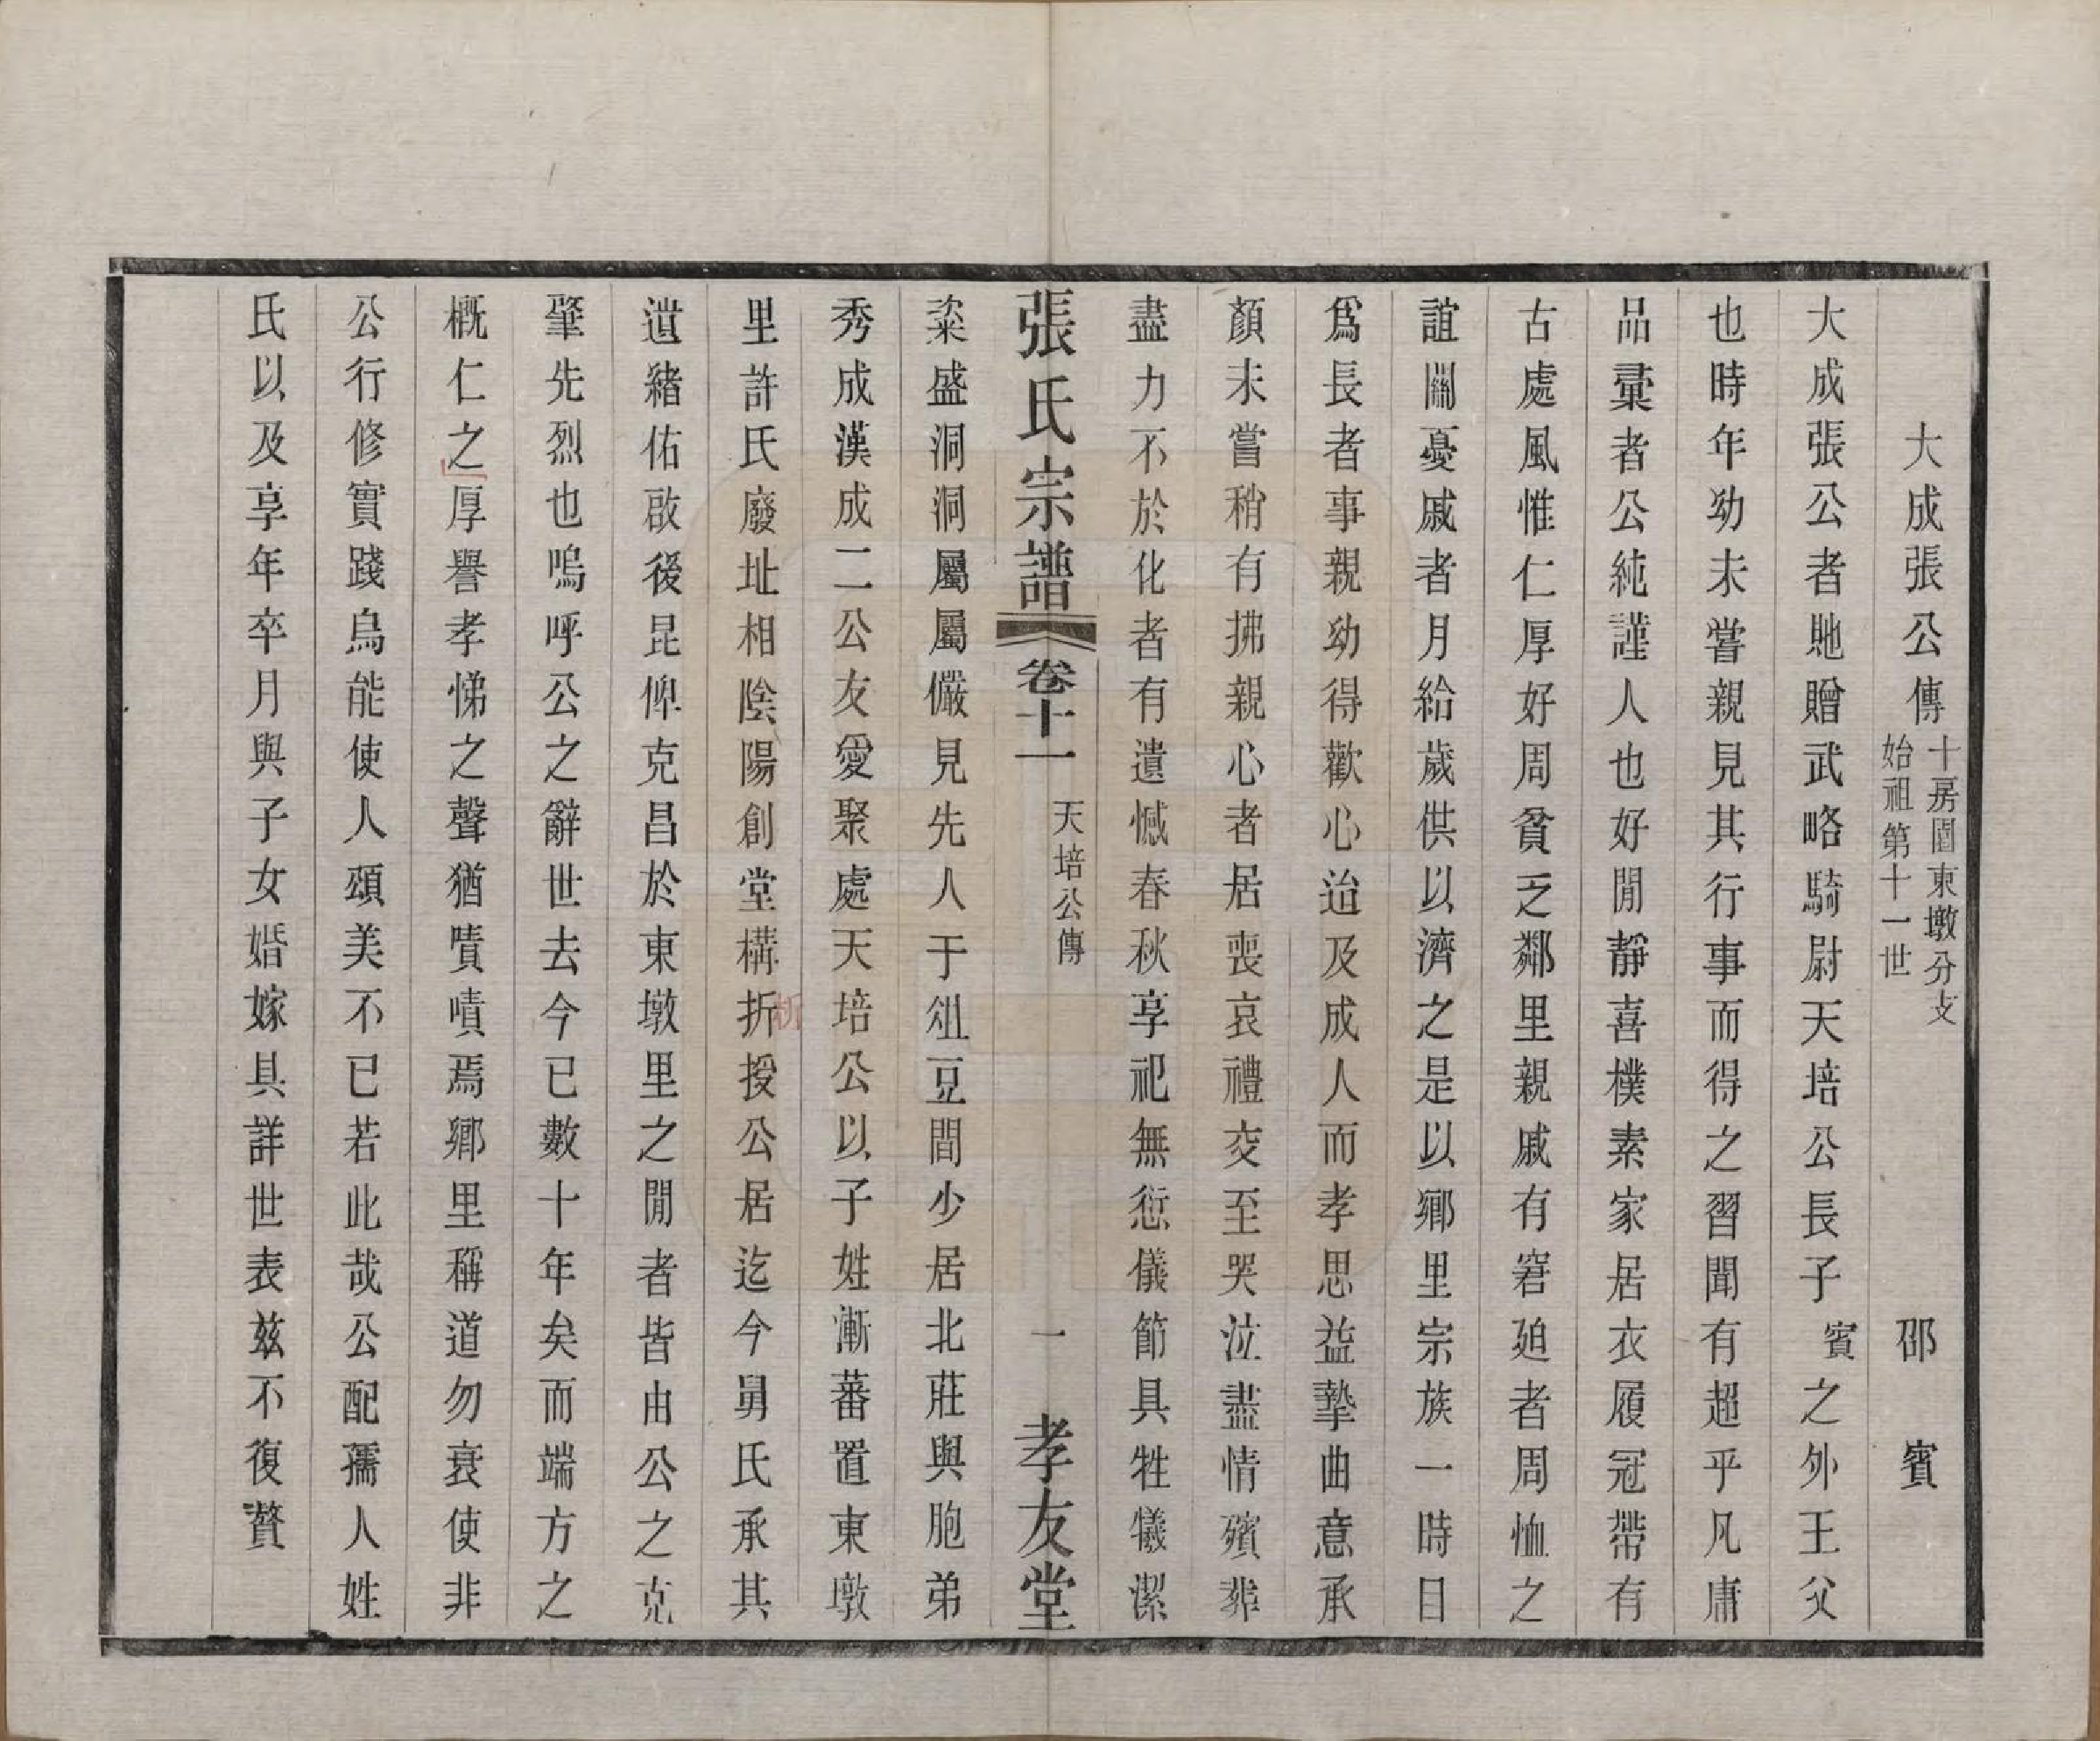 大成張公傳 十房圖東墩分支 始祖第十一世 邵賓
大成張公者貤贈武略騎尉天培公長子賓之外王父
也時年幼未嘗親見其行事而得之習聞有超乎凡庸
品彙者公純謹人也好閒靜喜樸素家居衣履冠帶有
古處風惟仁厚好周貧乏鄰里親戚有窘廹者周恤之
誼關憂戚者月給歲供以濟之是以鄉里宗族一時目
爲長者事親幼得歡心迨及成人而孝思益摯曲意承
顏未嘗稍有拂親心者居喪哀禮交至哭泣盡情殯葬
盡力不於化者有遺憾春秋享祀無愆儀節具牲犧潔
張氏宗譜 卷十一 天培公傳 一 孝友堂
粢盛洞洞屬屬儼見先人于俎豆間少居北莊與胞弟
秀成漢成二公友愛聚處天培公以子姓漸蕃置東墩
里許氏廢址相陰陽創堂構折授公居迄今舅氏承其
遺緒佑啟後昆俾克昌於東墩里之閒者皆由公之克
肇先烈也嗚呼公之辭世去今已數十年矣而端方之
概仁之厚譽孝悌之聲猶嘖嘖焉鄉里稱道勿衰使非
公行修實踐烏能使人頌美不已若此哉公配孺人姓
氏以及享年卒月與子女婚嫁具詳世表兹不復贅
析